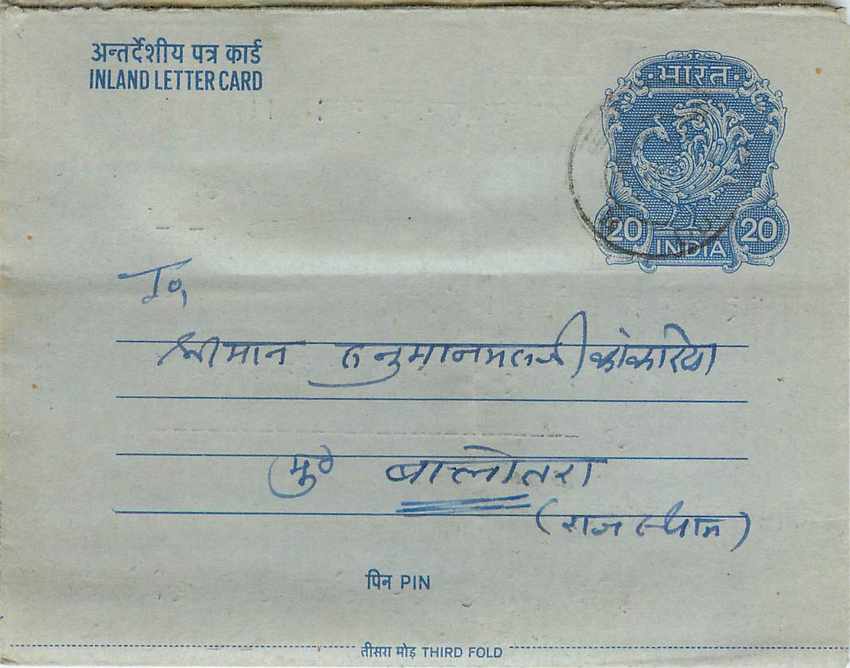 अन्तर्देशीय पत्र कार्ड
INLAND LETTER CARD
भारत
20 INDIA 20
To,
श्रीमान हनुमानमलजी कांकरिया
मु० बालोतरा
(राजस्थान)
पिन PIN
तीसरा मोड़ THIRD FOLD